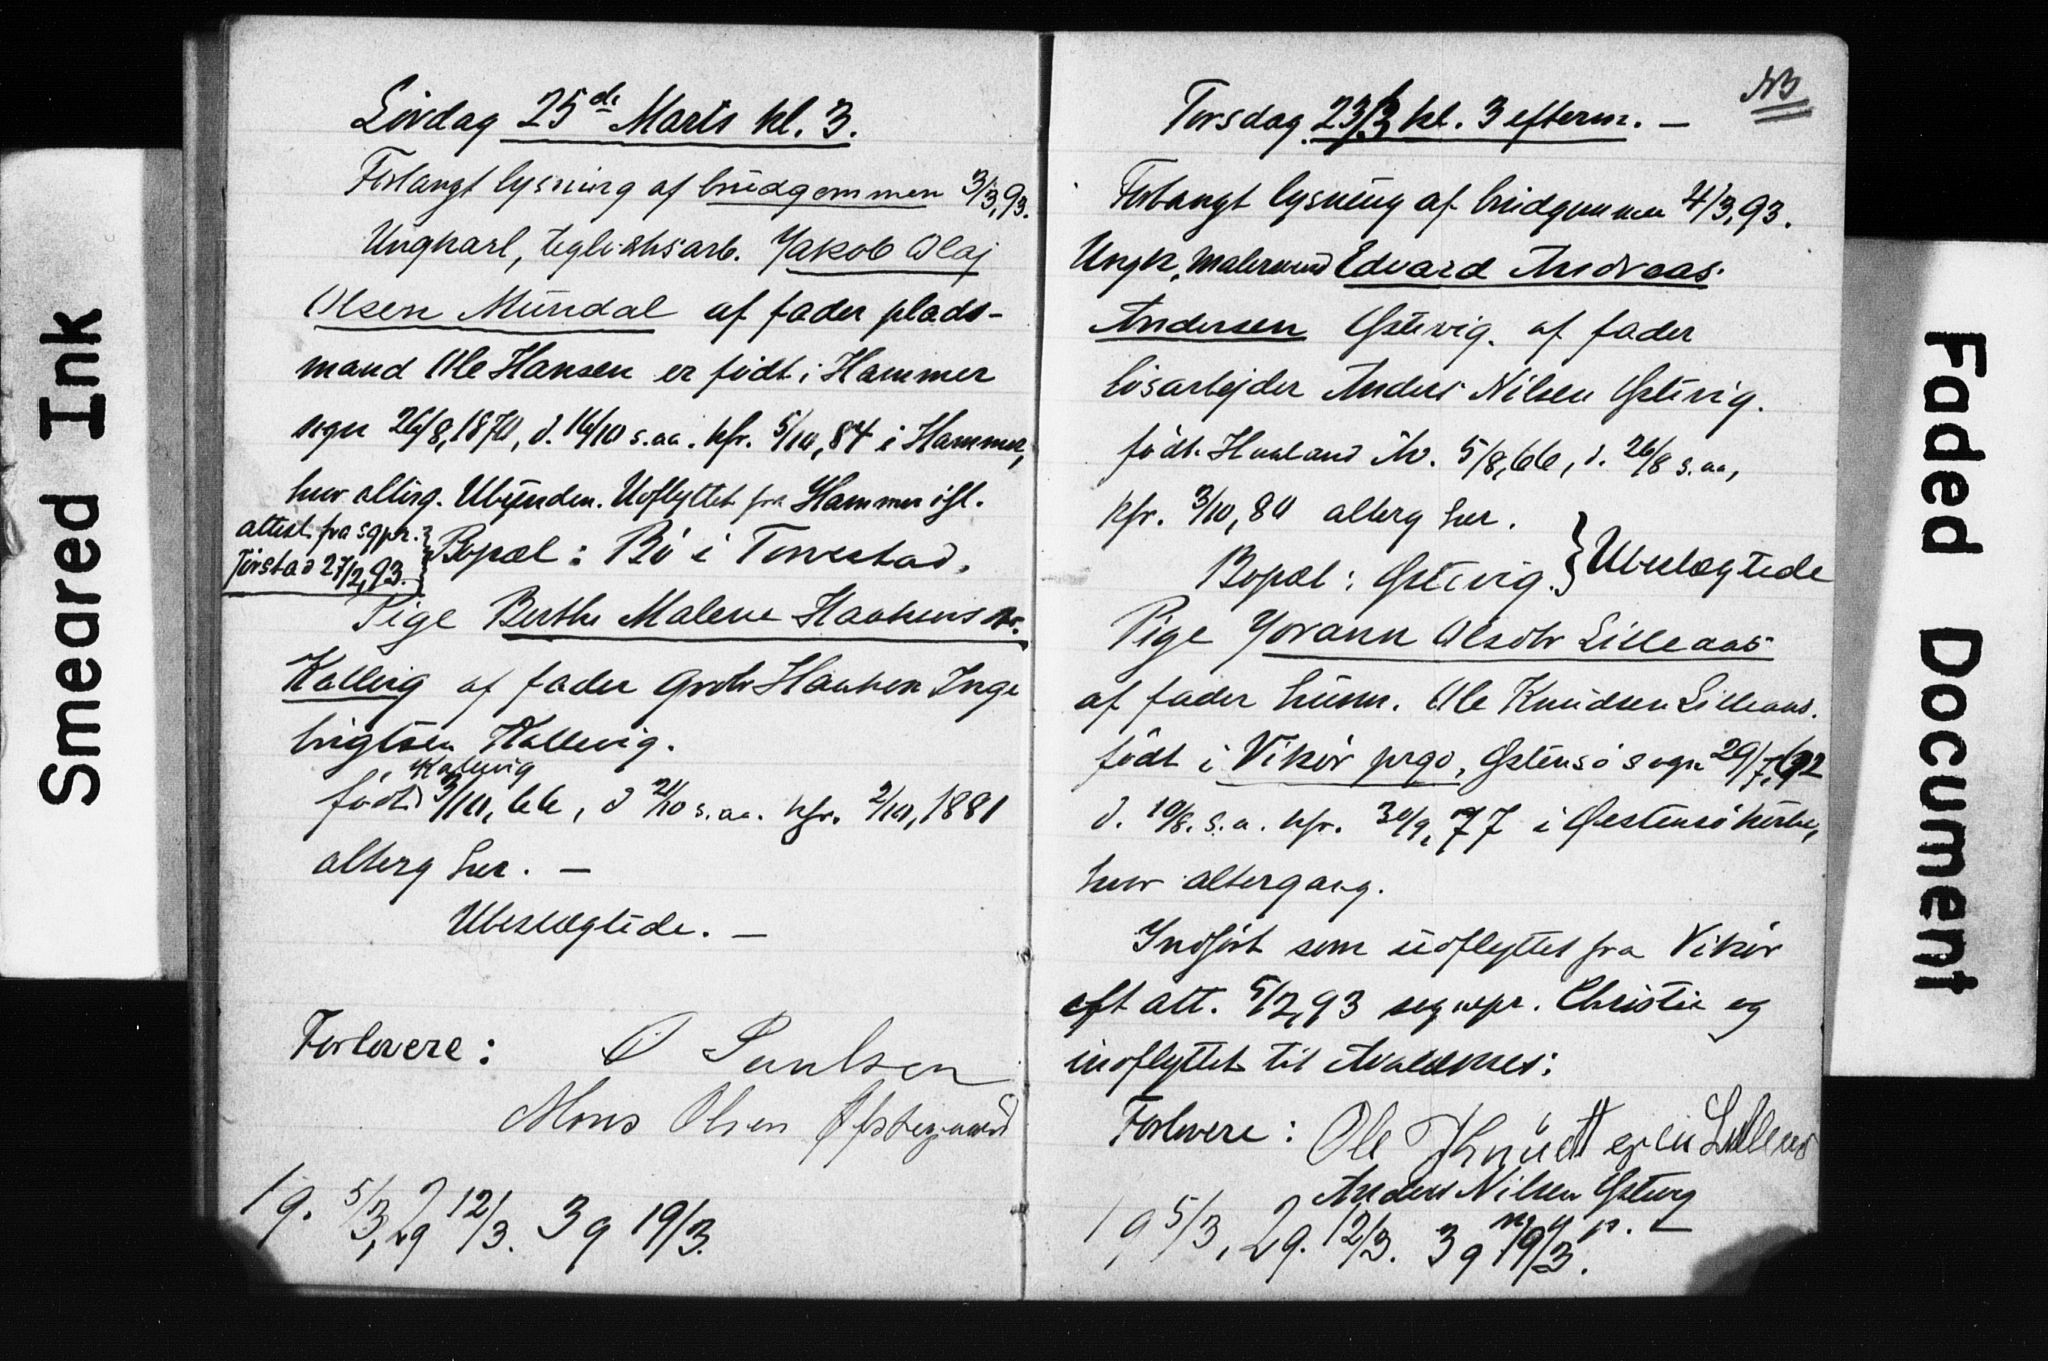 Smeared Ink
Lövdag 25de Marts kl. 3.
Forlangt lysning af brudgommen 3/3,93.
Ungkarl, teglværksarb. Jakob Olaj
Olsen Mundal af fader plads-
mand Ole Hansen er födt i Hammer
sogn 26/8,1870, d. 16/10 s.aa. kfr. 5/10,84 i Hammer,
hvor alterg. Ubunden. Udflyttet fra Hammer ifl.
attest fra sgpr.
Jörstad 27/2,93.
Bopæl: Bö i Torvestad.
Pige Berthe Malene Haakensdtr.
Kallevig af fader grdbr Haaken Inge
brigtsen Kallevig.
Kallevig
födt 3/10,66, d 21/10 s.aa. kfr. 2/10,1881
alterg her. —
Ubeslægtede. —
Forlovere: O Paulsen
Mons Olsen Østegaard
1g. 5/3, 2g 12/3. 3g 19/3.
NB
Torsdag 23/3 kl. 3 efterm. —
Forlangt lysning af brudgommen 4/3,93.
Ungk, malersvend Edvard Andreas
Andersen Östevig. af fader
lösarbejder Anders Nilsen Östevig.
födt. Hualand Av. 5/8,66, d. 26/8 s.aa,
kfr. 3/10,80 alterg her.
Bopæl: Östevig. } Ubeslægtede
Pige Jorann Olsdtr Lilleaas
af fader husm. Ole Knudsen Lilleaas.
födt i Vikör prgd, Östensö sogn 29/7,62
d. 10/8. s.a. kfr. 30/9,77 i Östensö kirke,
hvor altergang.
Indfört som udflyttet fra Vikör
eft att. 5/2,93 sognepr. Christie og
indflyttet til Avaldsnes:
Forlovere: Ole Knudtsen Lilleaas
Anders Nilsen Östevig
m. p. —
1g 5/3, 2g. 12/3. 3g 19/3.
Faded Document